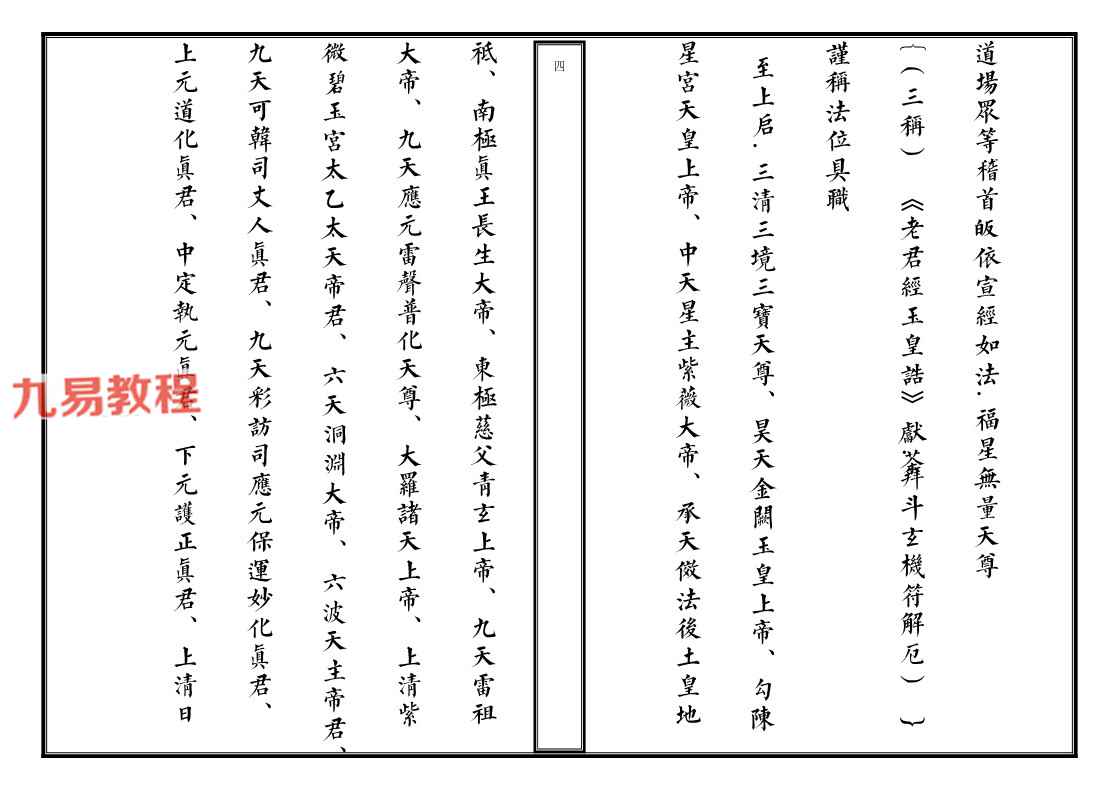 道場眾等稽首皈依宣經如法．福星無量天尊
{（三稱）　《老君經玉皇誥》獻粦斗玄機符解厄）｝
謹稱法位具職
至上启．三清三境三寶天尊、昊天金闕玉皇上帝、勾陳
星宮天皇上帝、中天星主紫薇大帝、承天傚法後土皇地
四
祗、南極眞王長生大帝、東極慈父青玄上帝、九天雷祖
大帝、九天應元雷聲普化天尊、大羅諸天上帝、上清紫
微碧玉宮太乙太天帝君、六天洞淵大帝、六波天主帝君、
九天可韓司丈人眞君、九天彩訪司應元保運妙化眞君、
上元道化眞君、中定執元眞君、下元護正眞君、上清日
九易教程